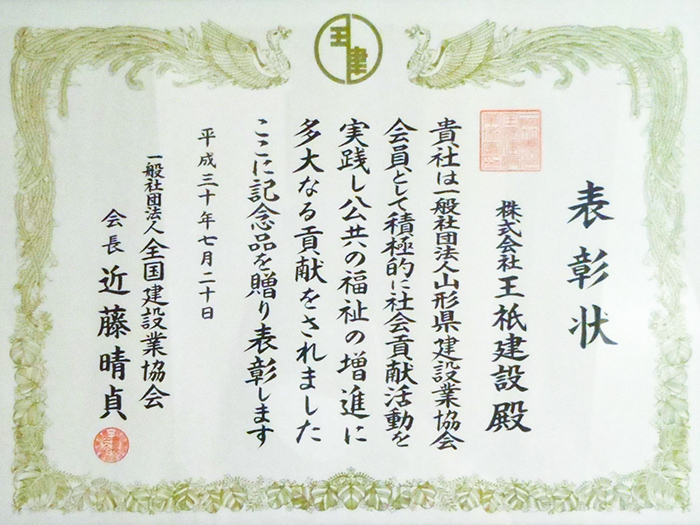 表彰状
株式会社王祇建設殿
貴社は一般社団法人山形県建設業協会
会員として積極的に社会貢献活動を
実践し公共の福祉の増進に
多大なる貢献をされました
ここに記念品を贈り表彰します
平成三十年七月二十日
一般社団法人全国建設業協会
会長近藤晴貞